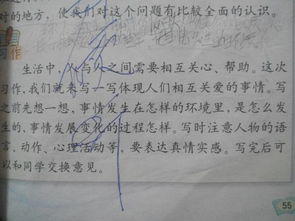 对的地方，使我们对这个问题有比较全面的认识。
作
生活中，人与人之间需要相互关心、帮助。这次
习作，我们就来写一写体现人们相互关爱的事情。写
之前先想一想，事情发生在怎样的环境里，是怎么发
生的，事情发展变化的过程怎样。写时注意人物的语
言、动作、心理活动等，要表达真情实感。写完后可
以和同学交换意见。
55